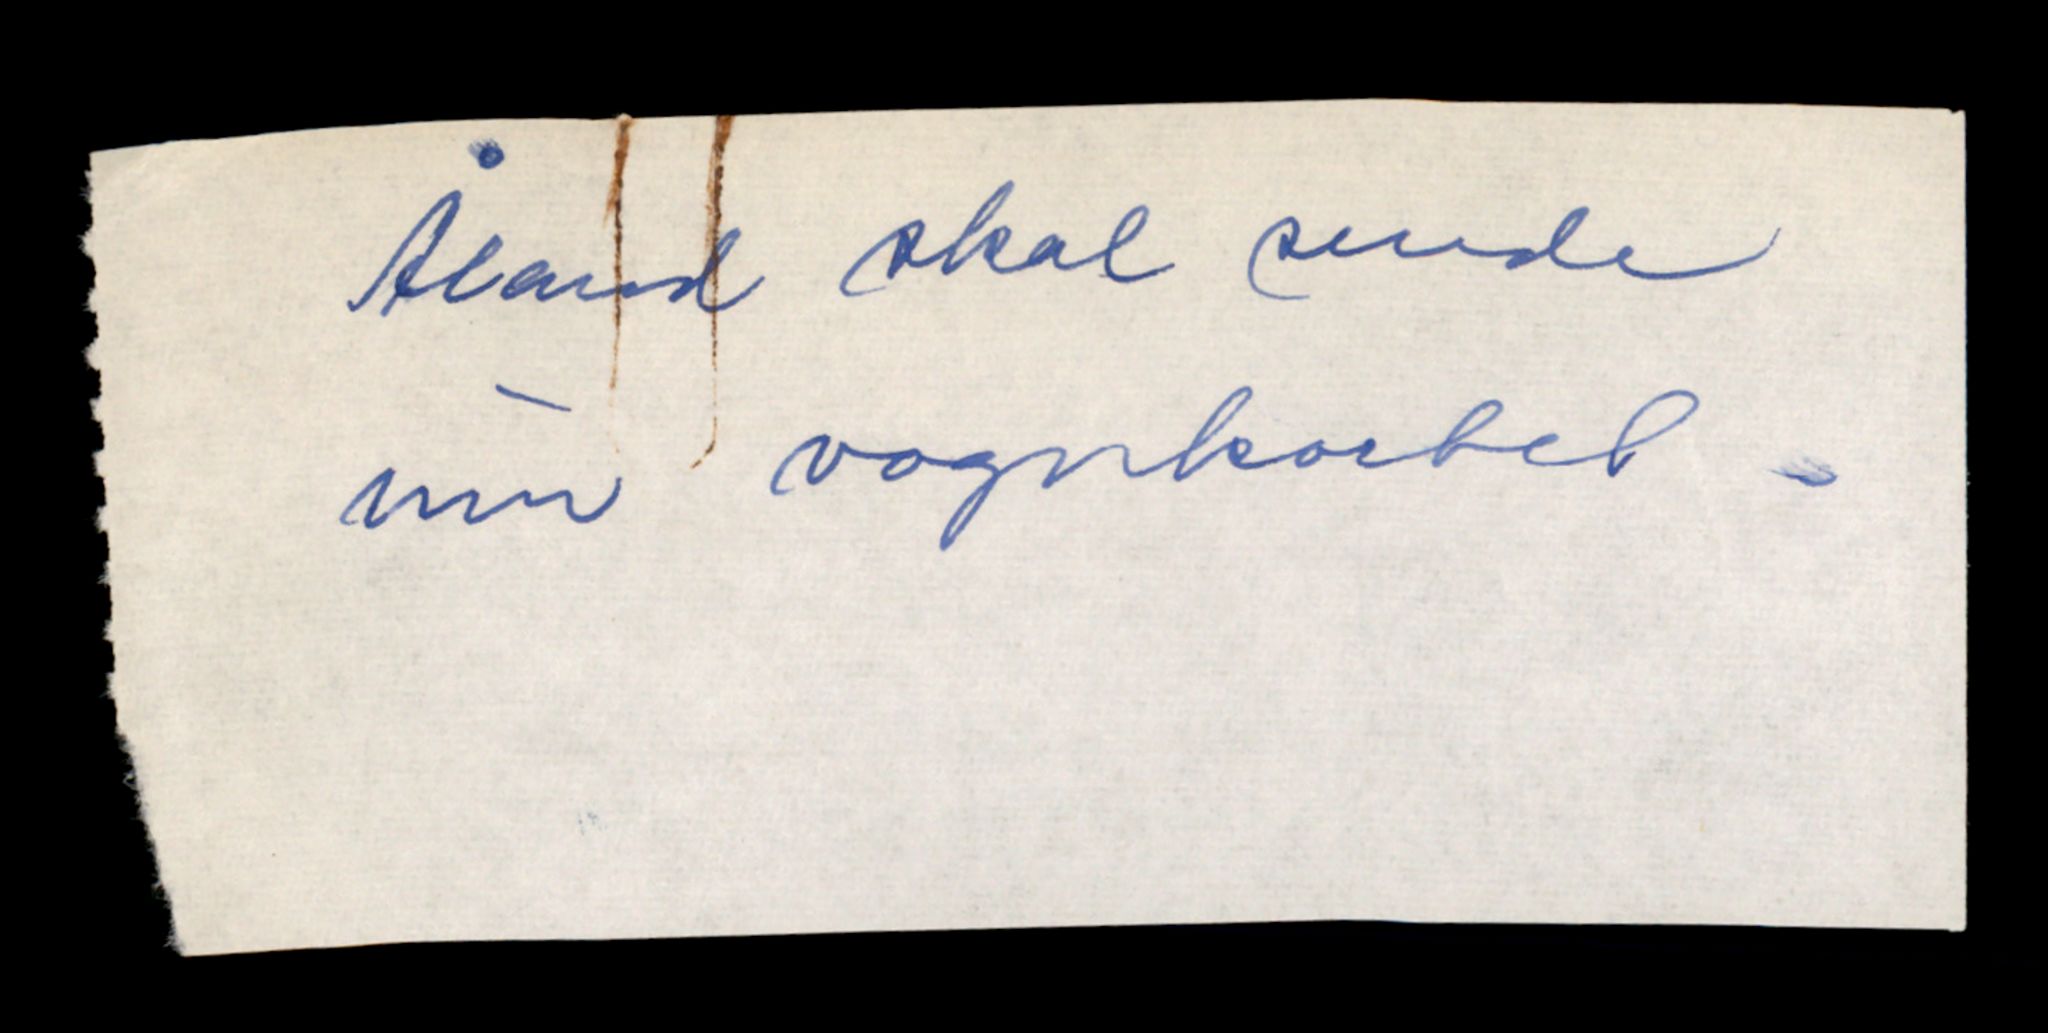 Åland skal sende
inn vognkortet.